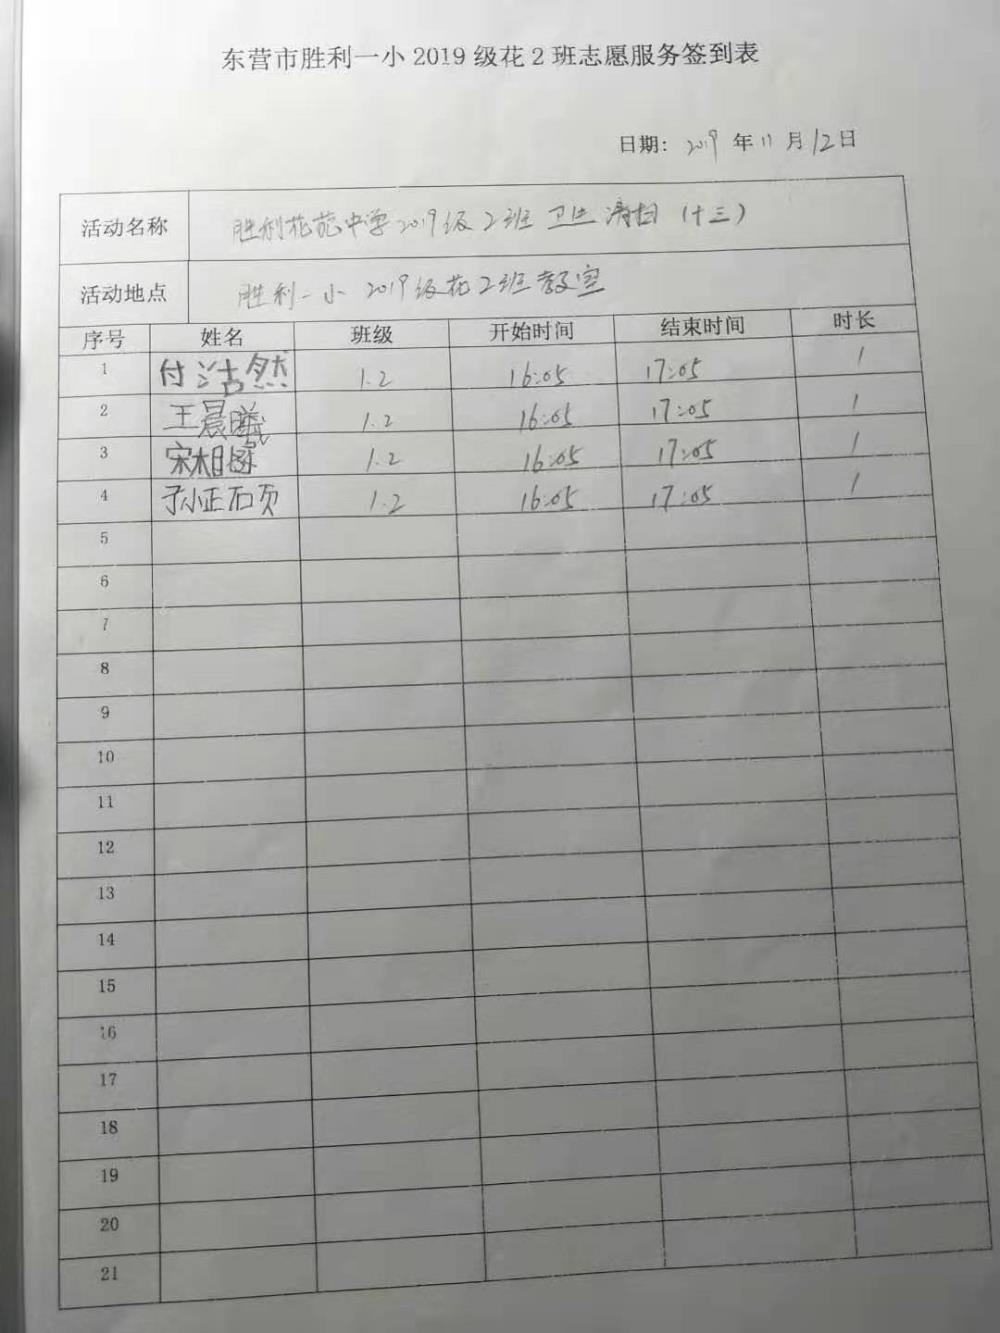 东营市胜利一小2019级花2班志愿服务签到表
日期: 2019 年 11 月 12 日
活动名称 胜利花苑中学2019级2班 卫生清扫(十三)
活动地点 胜利一小 2019级花2班教室
序号 姓名 班级 开始时间 结束时间 时长
1 付浩然 1.2 16:05 17:05 1
2 王晨曦 1.2 16:05 17:05 1
3 宋相 1.2 16:05 17:05 1
4 孙正硕 1.2 16:05 17:05 1
5
6
7
8
9
10
11
12
13
14
15
16
17
18
19
20
21